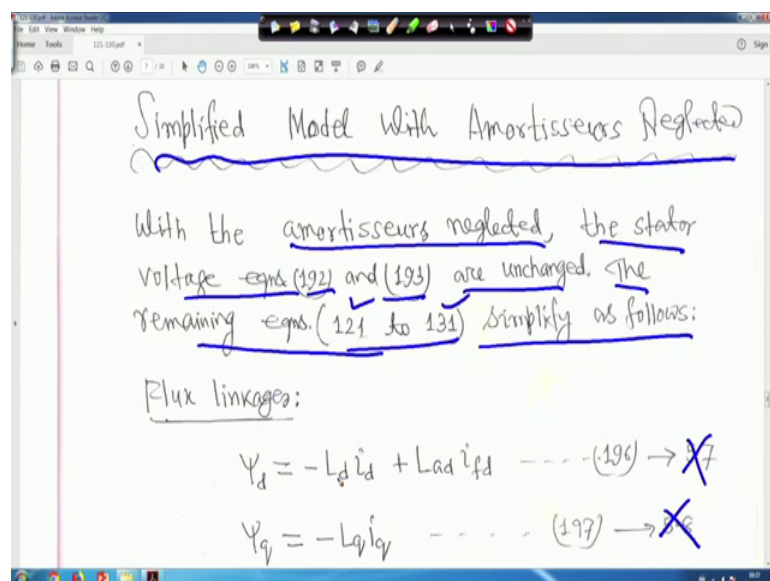 121-130.pdf - Adobe Acrobat Reader DC
File Edit View Window Help
Home Tools 121-130.pdf × Sign
7 / 10
Simplified Model With Amortisseurs Neglected
With the amortisseurs neglected, the stator
voltage eqns. (192) and (193) are unchanged. The
remaining eqns. (121 to 131) simplify as follows:
Flux linkages:
Ψd = -Ld id + Lad ifd - - - - - (196) →
Ψq = -Lq iq - - - - - (197) →